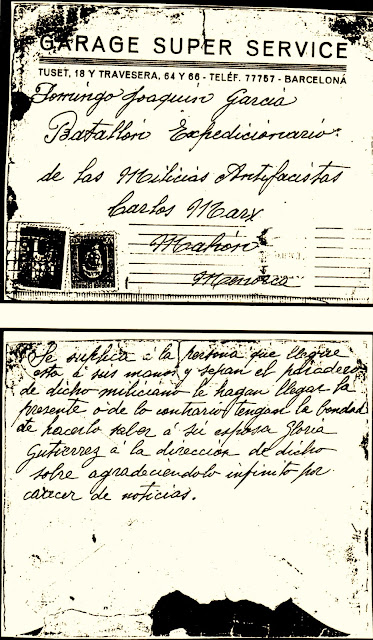 GARAGE SUPER SERVICE
TUSET, 18 Y TRAVESERA, 64 Y 66 - TELÉF. 77757 - BARCELONA
Domingo Joaquín García
Batallón Expedicionario
de las Milicias Antifacistas
Carlos Marx
Mahón
Menorca
Se suplica á la persona que llegue
esta á sus manos y sepan el paradero
de dicho miliciano le hagan llegar la
presente ó de lo contrario tengan la bondad
de hacerlo saber á su esposa Gloria
Gutierrez á la dirección de dicho
sobre agradeciendolo infinito por
carecer de noticias.